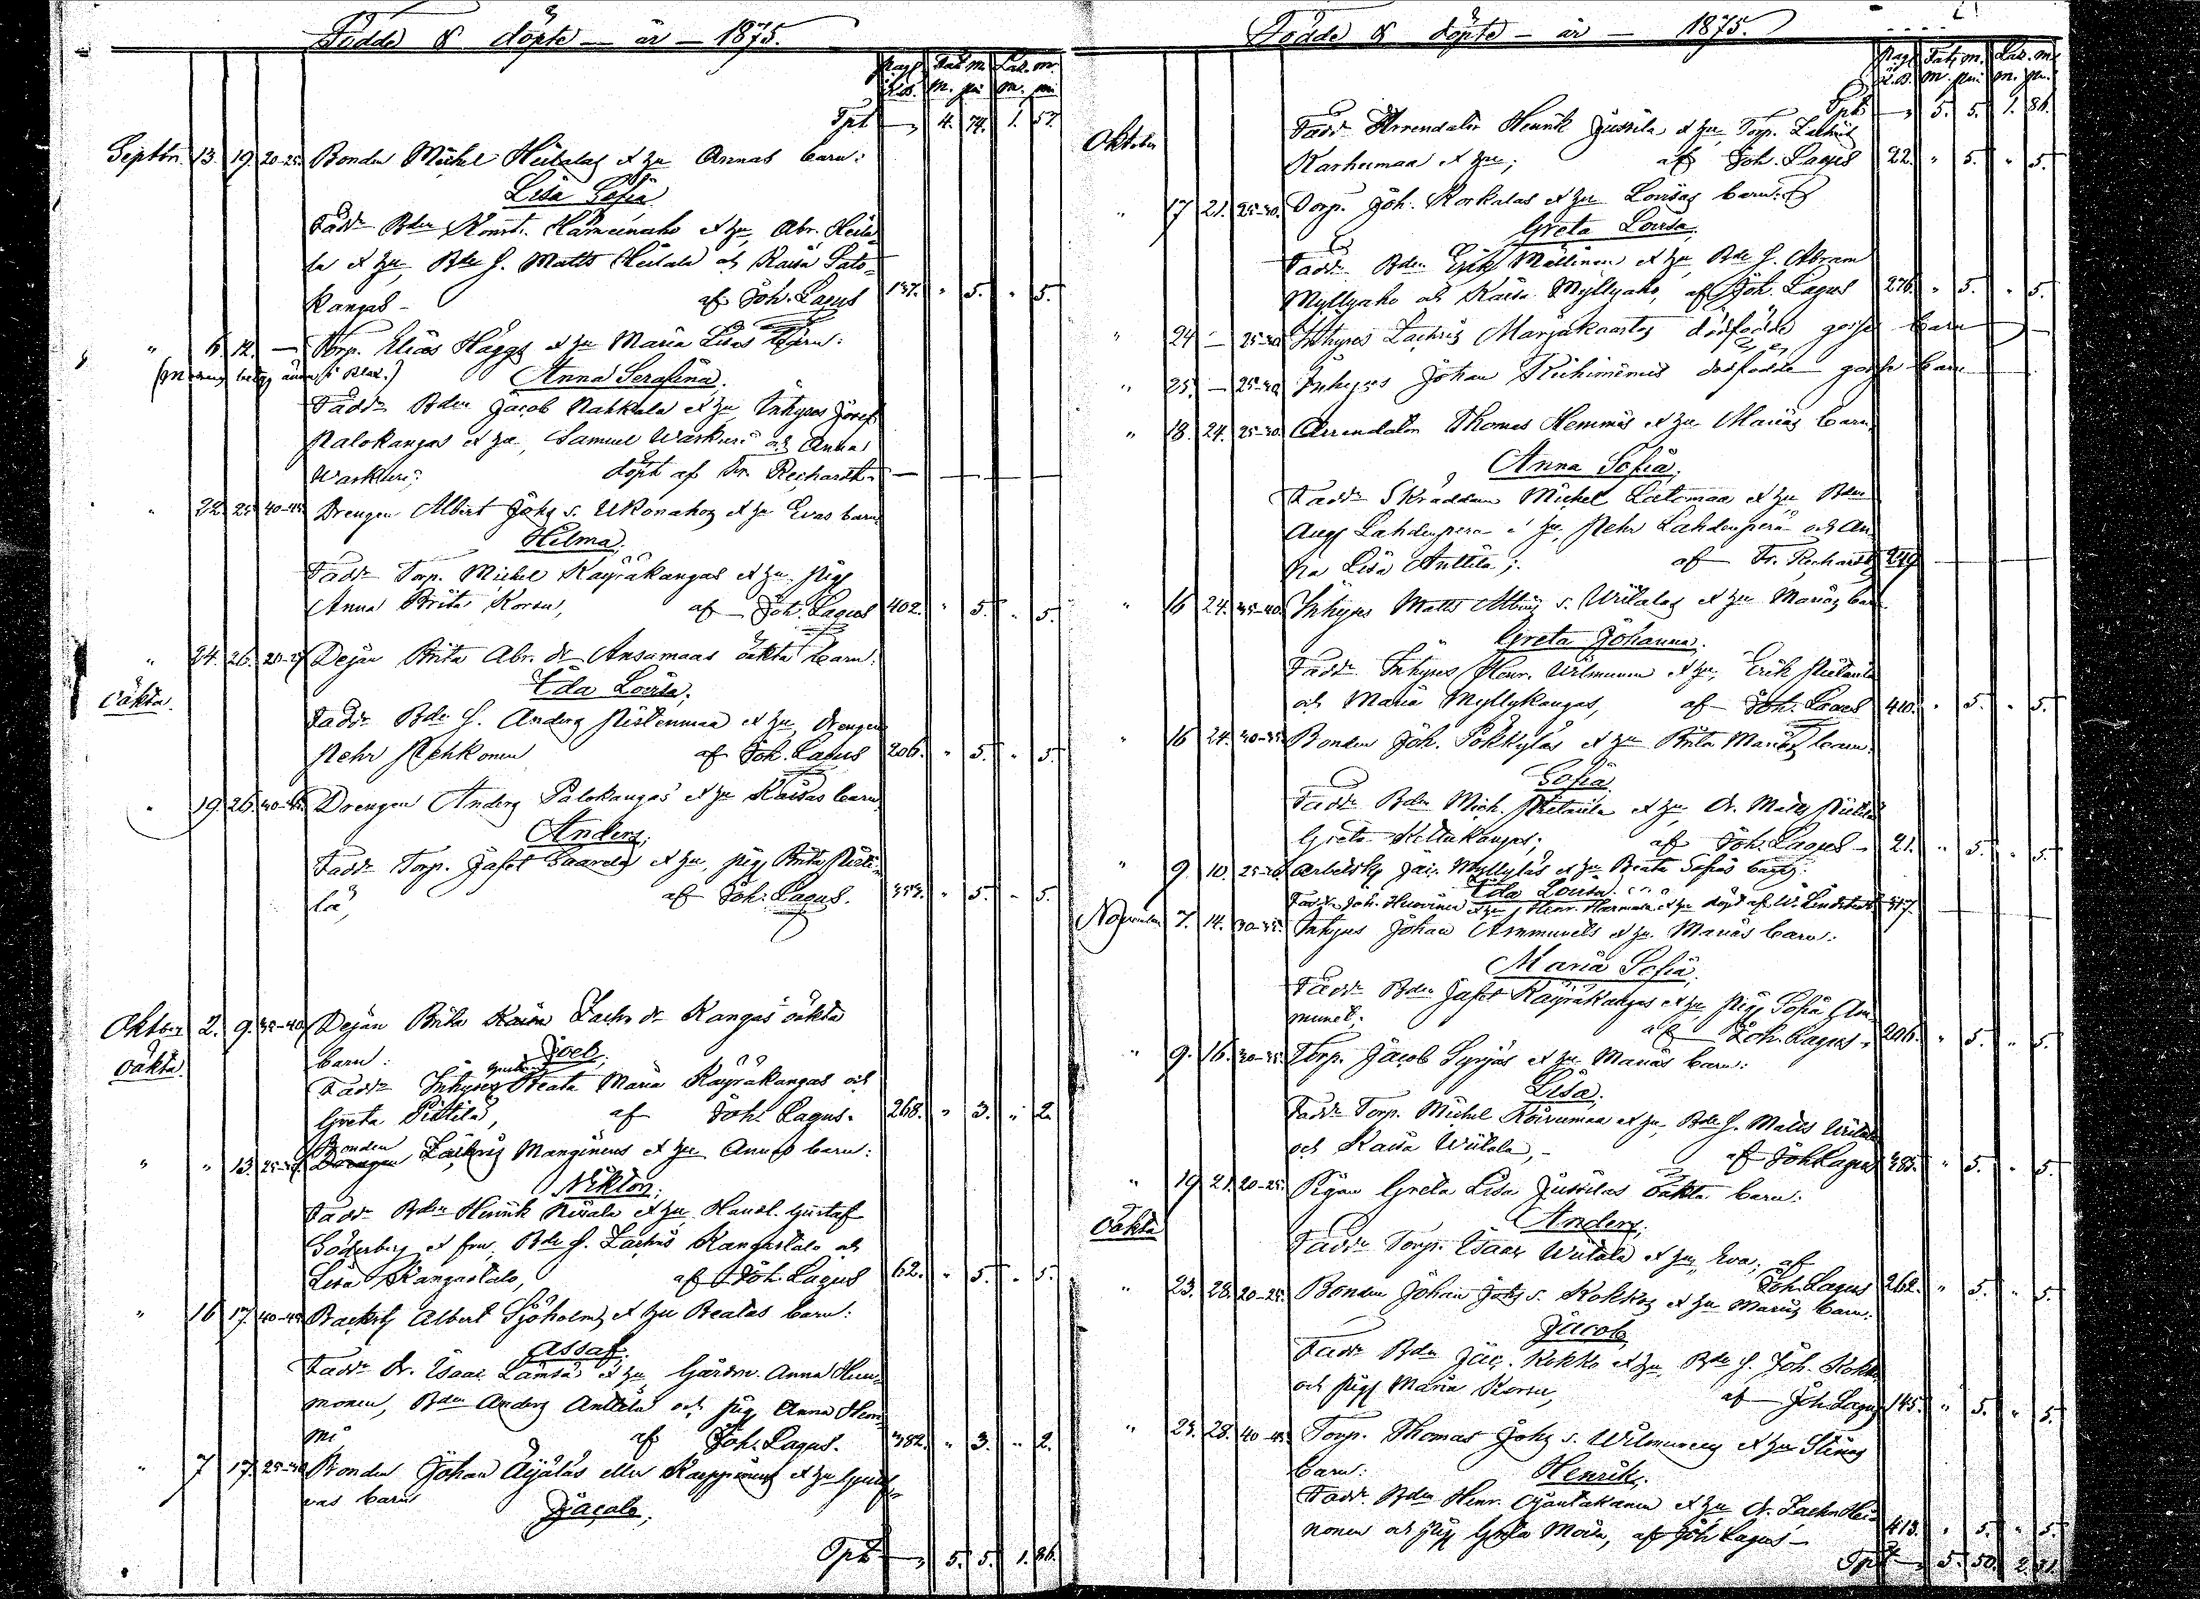 Födde & döpte – är – 1875.
Pag. Fat. m. Las. m.
K.B. m. pni m. pni
Tpt 4. 74. 1. 57.
Septbr. 13. 19. 20-25 Bonden Michel Heitalas & hu Annas barn:
Lisa Sofia
Faddr Bden Const. Hämeenaho & hu, Abr. Heita-
la & hu, Bde s. Matts Heitala och Kaisa Palo-
kangas – af Joh. Lagus 137. " 5. " 5.
" 6. 12. – Torp. Elias Häggs & hu Maria Lisas barn:
Anna Serafina.
Faddr Bden Jacob Nahkala & hu, Inhyses Josef
Palokangas & hu, Samuel Warkuri och Anna
Warkuri; döpt af Fr. Rechardt.
" 22. 25. 40-45 Drengen Albert Johs s. Ukonahos & hu Evas barn
Hilma.
Faddr Torp. Michel Käyräkangas & hu, Pig.
Anna Brita Korsu, af Joh. Lagus 402. " 5. " 5.
" 24. 26. 20-25 Dejan Brita Abr. dr Ansamaas oäkta barn:
oäkta. Ida Lovisa.
Faddr Bde s. Anders Pistenmaa & hu, drengen
Pehr Pehkonen af Joh. Lagus 206. " 5. " 5.
" 19. 26. 40-45 Drengen Anders Palokangas & hu Kaisas barn
Anders.
Faddr Torp. Jafet Saarela & hu, pig. Brita Pisti-
lä, af Joh. Lagus. 353. " 5. " 5.
Oktober 2. 9. 35-40 Dejan Brita Kaisa Zachr. dr Kangas oäkta
oäkta. barn: Joel.
Faddr Inhyses Beata Maria Käyräkangas och
Greta Pistilä, af Joh. Lagus. 268. " 3. " 2.
Bonden
" " 13. 25-30 Drengen Zachris Manginens & hu Annas barn:
Nikton.
Faddr Bden Henrik Nivala & hu, Handl. Gustaf
Söderberg & fru, Bde s. Zachris Kangastalo och
Lisa Kangastalo, af Joh. Lagus 62. " 5. " 5.
" 16 17. 40-45 Backstg Albert Sjöholms & hu Beatas barn:
Assaf.
Faddr dr. Isaac Lämsä & hu, Gärdm. Anna Hem-
monen, Bden Anders Anttila och pig. Anna Hem-
mi af Joh. Lagus. 382. " 3. " 2.
" 7 17. 25-30 Bonden Johan Äijäläs eller Karppinens & hu Gusta-
vas barn Jacob.
Tpt 5. 5. 1. 86.
Födde & döpte – är – 1875.
Pag. Fat. m. Las. m.
K.B. m. pni. m. pni.
Tpt 5. 5. 1. 86.
Oktober Faddr Arrendator Henrik Jussila & hu, Torp. Zachris
Karhumaa & hu; af Joh. Lagus 22. " 5. " 5.
" 17 21. 25-30. Torp. Joh. Korkalas & hu Lovisas barn:
Greta Lovisa.
Faddr Bden Erik Mällinen & hu, Bde s. Abram
Myllyaho och Kaisa Myllyaho, af Joh. Lagus 276. " 5. " 5.
" 24 – 25-30 Inhyses Zachris Marjakaartos dödfödde gosse barn
" 25. – 25-30 Inhyses Johan Riihimemis dödfödde gosse barn
" 18. 24. 25-30. Arrendator Thomas Hemmis & hu Marias barn,
Anna Sofia.
Faddr Skräddaren Michel Latomaa & hu, Bden
Aug. Lahdenperä & hu, Pehr Lahdenperä och An-
na Lisa Anttila; af Fr. Rechardt 249
" 16 24. 35-40. Inhyses Matts Albins s. Wiitalas & hu Marias barn
Greta Johanna.
Faddr Inhyses Henr. Wilmunen & hu, Erik Pietarila
och Maria Myllykangas, af Joh. Lagus 410. " 5. " 5.
" 16 24. 30-35 Bonden Joh. Pökkyläs & hu Brita Marias barn:
Sofia.
Faddr Bden Mich. Pietarila & hu, dr. Matts Pietilä
Greta Kellukangas; af Joh. Lagus 21. " 5. " 5.
" 9 10. 25-30 Arbetsk. Jac. Myllyläs & hu Beata Sofias barn.
Ida Lovisa.
Faddr Joh. Huovinen & hu, Henr. Härmälä & hu döpt af W. Lindstedt 317.
November 7. 14. 30-35. Inhyses Johan Ammunets & hu Marias barn:
Maria Sofia.
Faddr Bden Jafet Käyräkangas & hu, Pig. Sofia Am-
munet. af Joh. Lagus. 206. " 5. " 5.
" 9. 16. 30-35. Torp. Jacob Syrjäs & hu Marias barn:
Lisa.
Faddr Torp. Michel Koivumaa & hu, Bde s. Matts Wiitala
och Kaisa Wiitala, – af Joh. Lagus 285. " 5. " 5.
" 19 21. 20-25. Pigan Greta Lisa Jussilas oäkta barn:
Oäkta Anders.
Faddr Torp. Isaac Wiitala & hu, Eva, af
Joh. Lagus 262. " 5. " 5.
" 23. 28. 20-25. Bonden Johan Johs s. Kokkos & hu Marias barn:
Jacob.
Faddr Bden Jac. Kokko & hu, Bde s. Joh. Kokko
och pig. Maria Korsu, af Joh. Lagus 145. " 5. " 5.
" 23. 28. 40-45. Torp. Thomas Johs s. Wilmunens & hu Stinas
barn: Henrik.
Faddr Bden Henr. Ojantakanen & hu, dr. Zachr. Hei-
nonen och pig. Greta Moila, af Joh. Lagus – 413. " 5. " 5.
Tpt 5. 50. 2. 31.